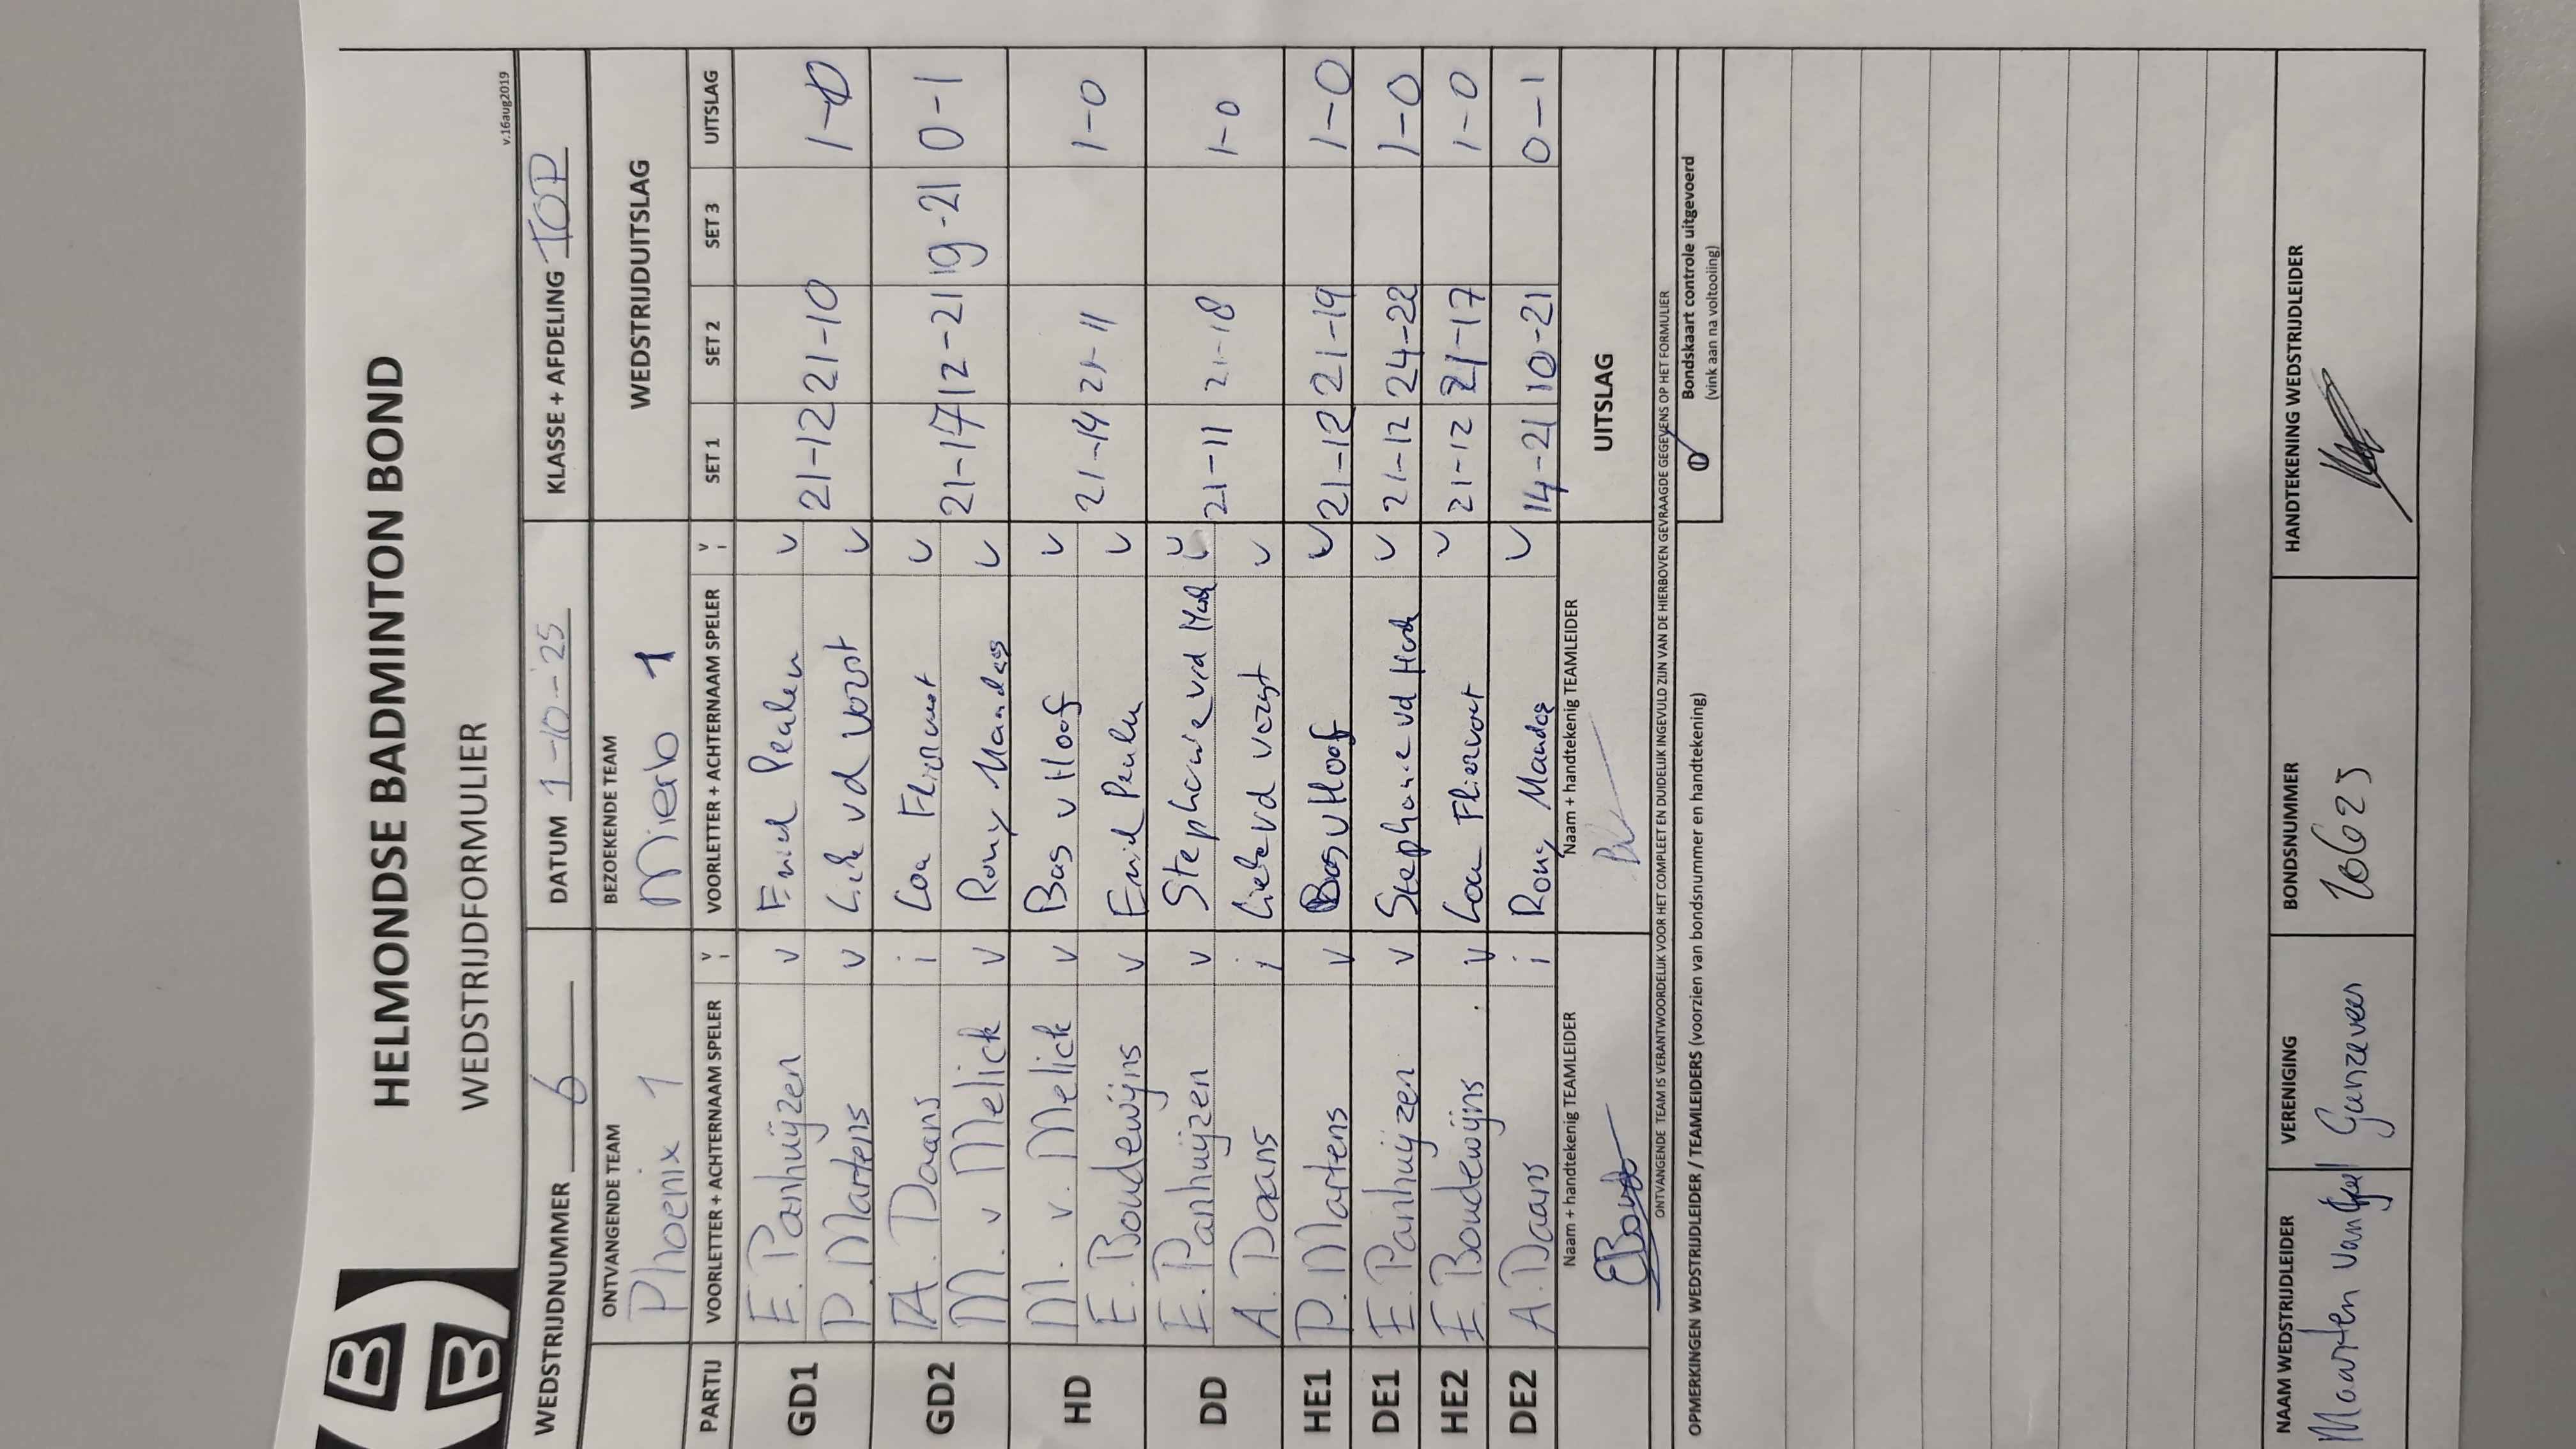 HELMONDSE BADMINTON BOND
WEDSTRIJDFORMULIER
v.16aug2019
WEDSTRIJDNUMMER 6 DATUM 1-10-'25 KLASSE + AFDELING TOP
ONTVANGENDE TEAM BEZOEKENDE TEAM WEDSTRIJDUITSLAG
Phoenix 1 Mierlo 1
PARTIJ VOORLETTER + ACHTERNAAM SPELER v i VOORLETTER + ACHTERNAAM SPELER v i SET 1 SET 2 SET 3 UITSLAG
GD1 E. Panhuijzen v v 21-12 21-10 1-0
P. Martens v vd Voort v
GD2 A. Daans i v 21-17 12-21 19-21 0-1
M. v Melick v Rony Maandag v
HD M. v. Melick v Bas v Hoof v 21-14 21-11 1-0
E. Boudewijns v v
DD E. Panhuijzen v Stephanie vd v 21-11 21-18 1-0
A. Daans i vd v
HE1 P. Martens v Bas v Hoof v 21-12 21-19 1-0
DE1 E. Panhuijzen v Stephanie vd v 21-12 24-22 1-0
HE2 E. Boudewijns v Fliervoet v 21-12 21-17 1-0
DE2 A. Daans i Rony Maandag v 14-21 10-21 0-1
Naam + handtekenig TEAMLEIDER Naam + handtekenig TEAMLEIDER UITSLAG
ONTVANGENDE TEAM IS VERANTWOORDELIJK VOOR HET COMPLEET EN DUIDELIJK INGEVULD ZIJN VAN DE HIERBOVEN GEVRAAGDE GEGEVENS OP HET FORMULIER
OPMERKINGEN WEDSTRIJDLEIDER / TEAMLEIDERS (voorzien van bondsnummer en handtekening)
Bondskaart controle uitgevoerd
(vink aan na voltooiing)
NAAM WEDSTRIJDLEIDER VERENIGING BONDSNUMMER HANDTEKENING WEDSTRIJDLEIDER
Maarten Ganzeveer